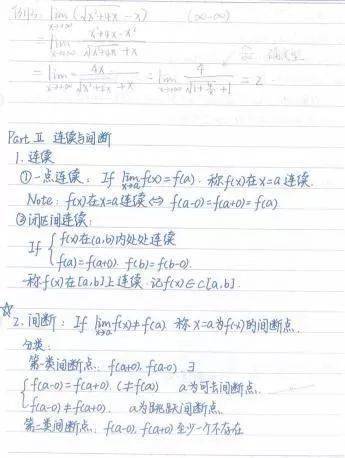 lim x→+∞ (√x²+4x - x) (∞-∞)
= lim x→+∞ x²+4x-x² / √x²+4x + x
= lim x→+∞ 4x / √x²+4x + x = lim x→+∞ 4 / √1+4/x +1 = 2
Part Ⅱ 连续与间断
1. 连续
①一点连续: If lim x→a f(x)=f(a). 称f(x)在x=a连续.
Note: f(x)在x=a连续⇔ f(a-0)=f(a+0)=f(a)
②闭区间连续:
If { f(x)在(a,b)内处处连续
f(a)=f(a+0). f(b)=f(b-0).
称f(x)在[a,b]上连续. 记f(x)∈c[a,b].
☆ 2. 间断: If lim x→a f(x)≠f(a) 称x=a为f(x)的间断点.
分类:
第一类间断点: f(a+0). f(a-0). ∃
{ f(a-0)=f(a+0). (≠f(a)) a为可去间断点.
f(a-0)≠f(a+0). a为跳跃间断点.
第二类间断点: f(a-0), f(a+0)至少一个不存在